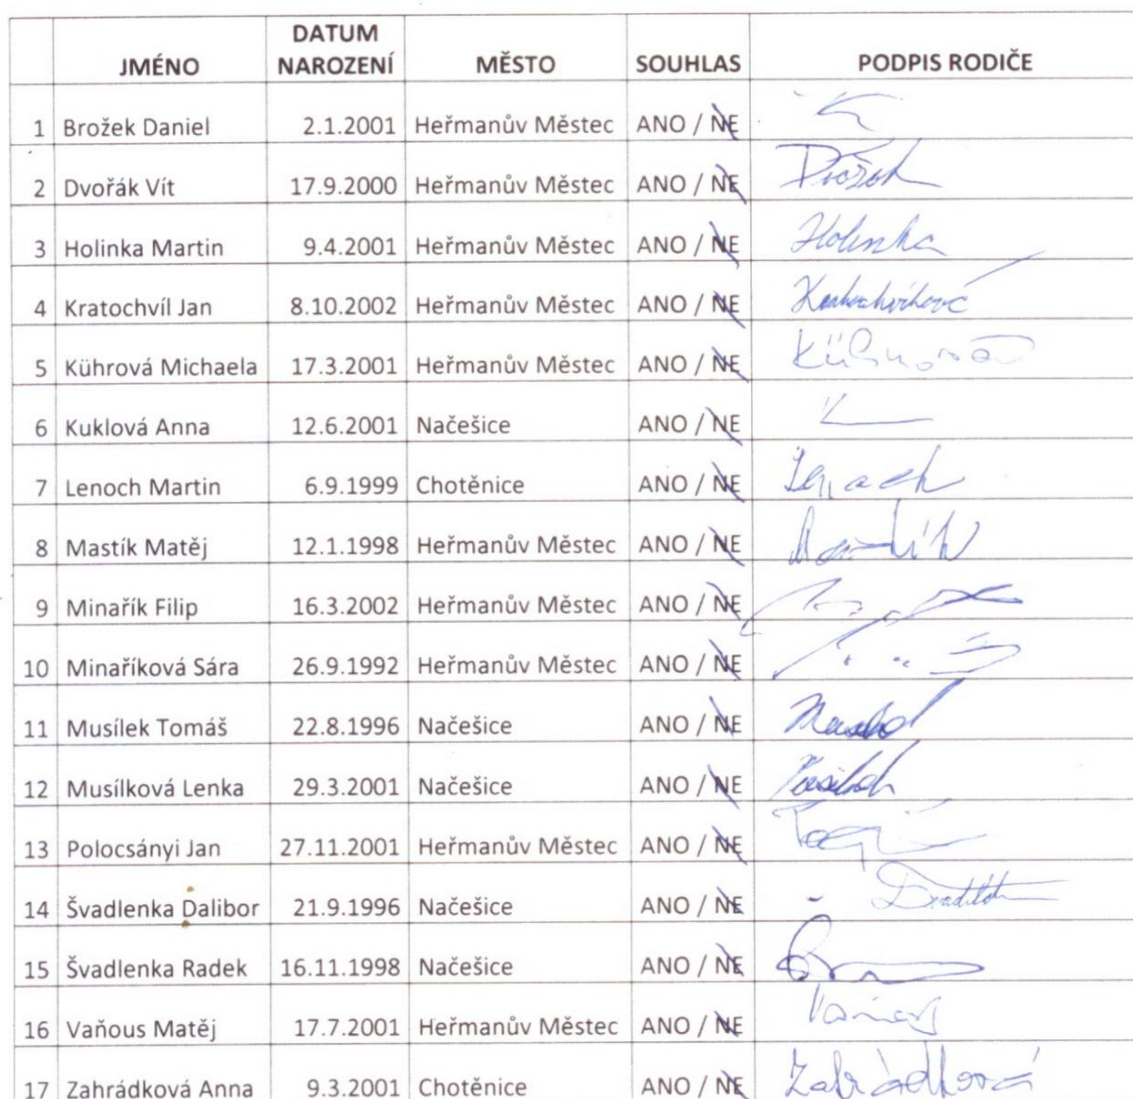 JMÉNO DATUM NAROZENÍ MĚSTO SOUHLAS PODPIS RODIČE
1 Brožek Daniel 2.1.2001 Heřmanův Městec ANO / NE
2 Dvořák Vít 17.9.2000 Heřmanův Městec ANO / NE Dvořák
3 Holinka Martin 9.4.2001 Heřmanův Městec ANO / NE Holinka
4 Kratochvíl Jan 8.10.2002 Heřmanův Městec ANO / NE Kratochvílová
5 Kührová Michaela 17.3.2001 Heřmanův Městec ANO / NE Kührová
6 Kuklová Anna 12.6.2001 Načešice ANO / NE
7 Lenoch Martin 6.9.1999 Chotěnice ANO / NE Lenoch
8 Mastík Matěj 12.1.1998 Heřmanův Městec ANO / NE Mastík
9 Minařík Filip 16.3.2002 Heřmanův Městec ANO / NE
10 Minaříková Sára 26.9.1992 Heřmanův Městec ANO / NE
11 Musílek Tomáš 22.8.1996 Načešice ANO / NE
12 Musílková Lenka 29.3.2001 Načešice ANO / NE
13 Polocsányi Jan 27.11.2001 Heřmanův Městec ANO / NE
14 Švadlenka Dalibor 21.9.1996 Načešice ANO / NE
15 Švadlenka Radek 16.11.1998 Načešice ANO / NE
16 Vaňous Matěj 17.7.2001 Heřmanův Městec ANO / NE Vaňous
17 Zahrádková Anna 9.3.2001 Chotěnice ANO / NE Zahrádková